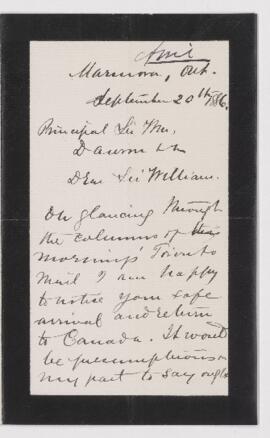 April
Marmora, Ont.
September 20th 1886.
Principal Sir Wm,
Dawson
Dear Sir William.
On glancing through
the columns of this
mornings' Toronto
Mail I am happy
to notice your safe
arrival and return
to Canada. It would
be presumptious on
my part to say ought